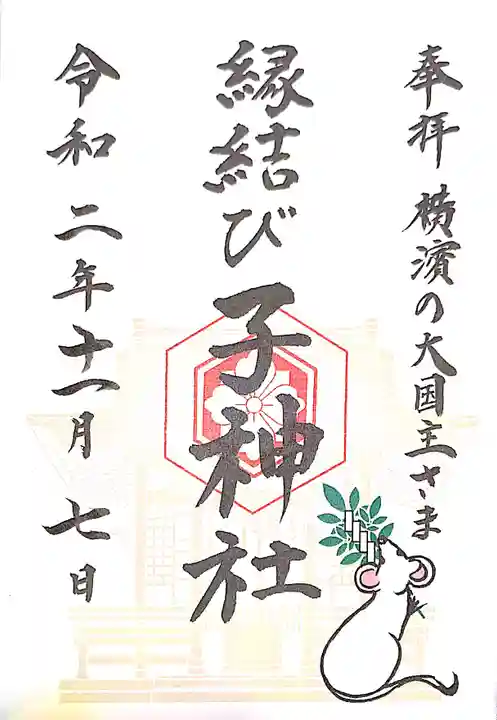 奉拝 横濱の大国主さま
縁結び子神社
令和二年十一月七日